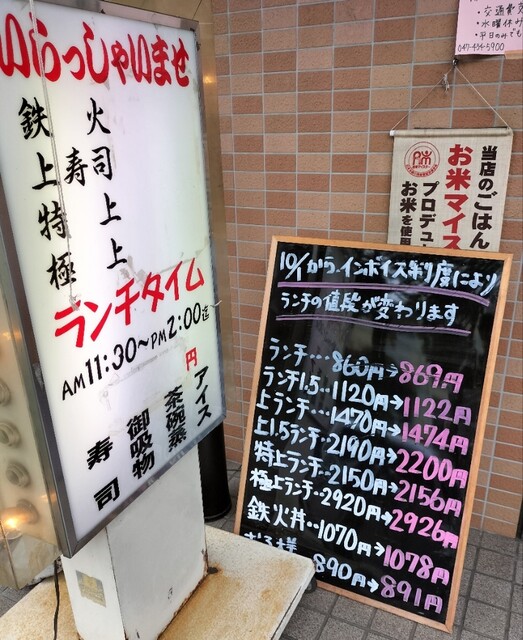 いらっしゃいませ
火司上上
寿
鉄上特極
ランチタイム
AM11:30～PM2:00迄
円
アイス
茶碗蒸
御吸物
寿司
・水曜休み
・平日のみでも
047-454-5900
当店のごはん
お米マイス
プロデュー
お米を使用
10/1から、インボイス制度により
ランチの値段が変わります
ランチ…860円→869円
ランチ1.5…1120円→1122円
上ランチ…1470円→1474円
上1.5ランチ…2190円→2200円
特上ランチ…2150円→2156円
極上ランチ…2920円→2926円
鉄火丼…1070円→1078円
890円→891円